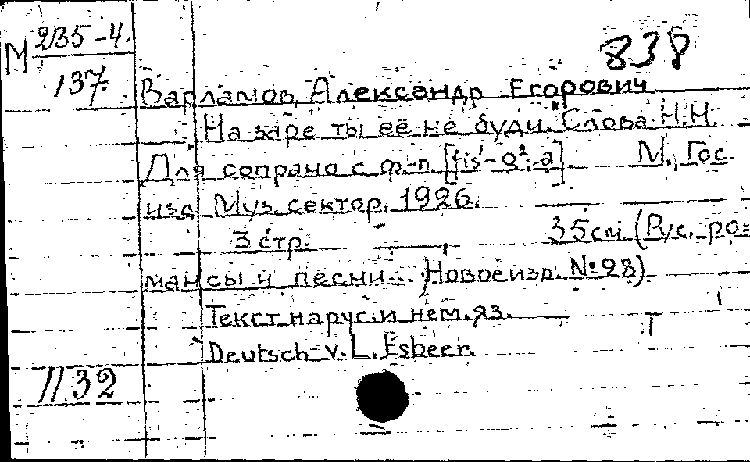 М 235-4.
137.
838
Варламов, Александр Егорович
На заре ты её не буди. Слова Н.Н.
Для сопрано с ф-п. М., Гос.
изд. Муз. сектор. 1926.
3 стр. 35 см (Рус. ро=
мансы и песни... Новое изд. №28)
Текст на рус. и нем. яз.
Deutsch v. L. Esbeer.
1132